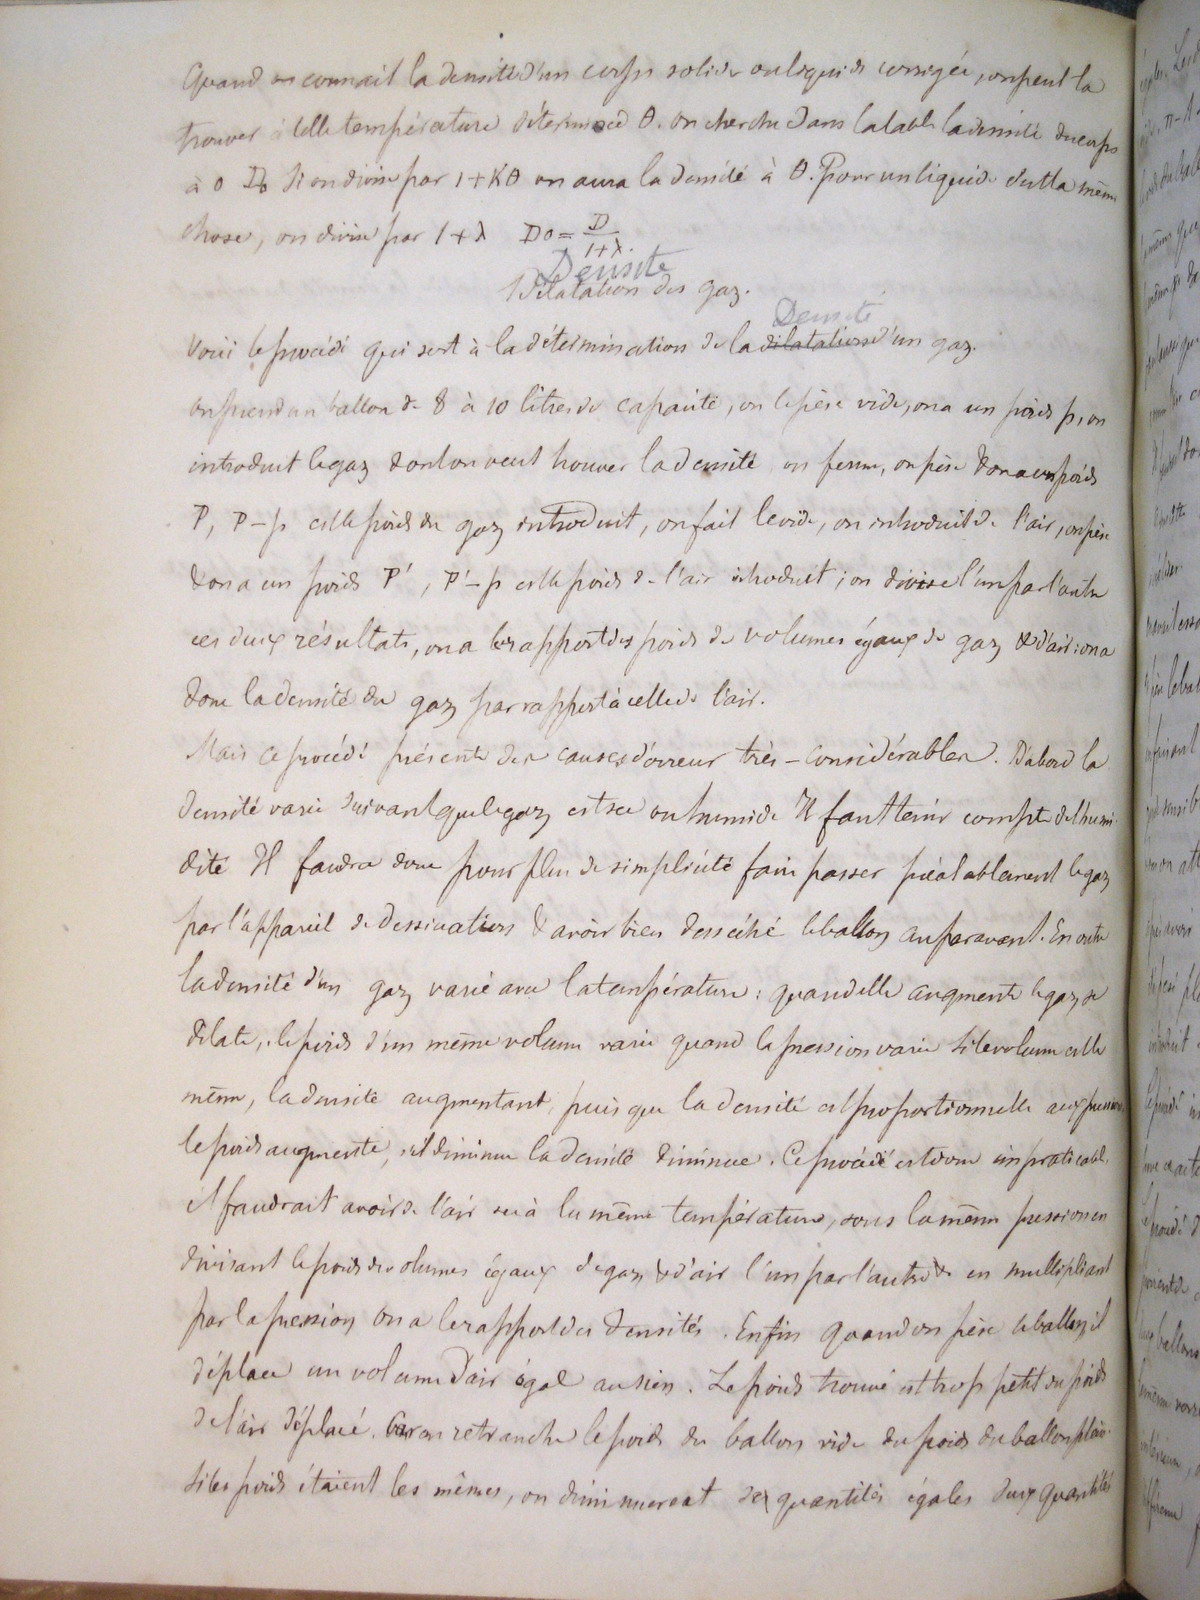 Quand on connait la densité d'un corps solide ou liquide corrigée, on peut la
trouver à telle température déterminée θ. on cherche dans la table la densité du corps
à 0 D0 Si on divise par 1+Kθ on aura la densité à θ. Pour un liquide c'est la même
chose, on divise par 1+λ D0 = D/1+λ.
Densité
Dilatation des gaz.
Densité
Voici le procédé qui sert à la détermination de la dilatation d'un gaz.
on prend un ballon de 8 à 10 litres de capacité, on le pèse vide, on a un poids p, on
introduit le gaz dont on veut trouver la densité on ferme, on pèse & on a un poids
P, P-p est le poids du gaz introduit, on fait le vide, on introduit de l'air, on pèse
& on a un poids P', P'-p est le poids de l'air introduit; on divise l'un par l'autre
ces deux résultats, on a le rapport des poids de volumes égaux de gaz & d'air: on a
donc la densité du gaz par rapport à celle de l'air.
Mais ce procédé présente des causes d'erreur très-considérables. D'abord la
densité varie suivant que le gaz est sec ou humide Il faut tenir compte de l'humi-
dité Il faudra donc pour plus de simplicité faire passer préalablement le gaz
par l'appareil de dessication & avoir bien desséché le ballon auparavant. En outre
la densité d'un gaz varie avec la température: quand elle augmente le gaz se
dilate, le poids d'un même volume varie quand la pression varie Si le volume est le
même, la densité augmentant, puisque la densité est proportionnelle aux pressions
le poids augmente, s'il diminue la densité diminue. Ce procédé est donc impraticable.
il faudrait avoir de l'air sec à la même température, sous la même pression en
divisant le poids de volumes égaux de gaz & d'air l'un par l'autre & en multipliant
par la pression on a le rapport des densités. Enfin quand on pèse le ballon, il
déplace un volume d'air égal au sien. Le poids trouvé est trop petit du poids
de l'air déplacé. Car on retranche le poids du ballon vide du poids du ballon plein.
Si les poids étaient les mêmes, on diminuerait des quantités égales deux quantités